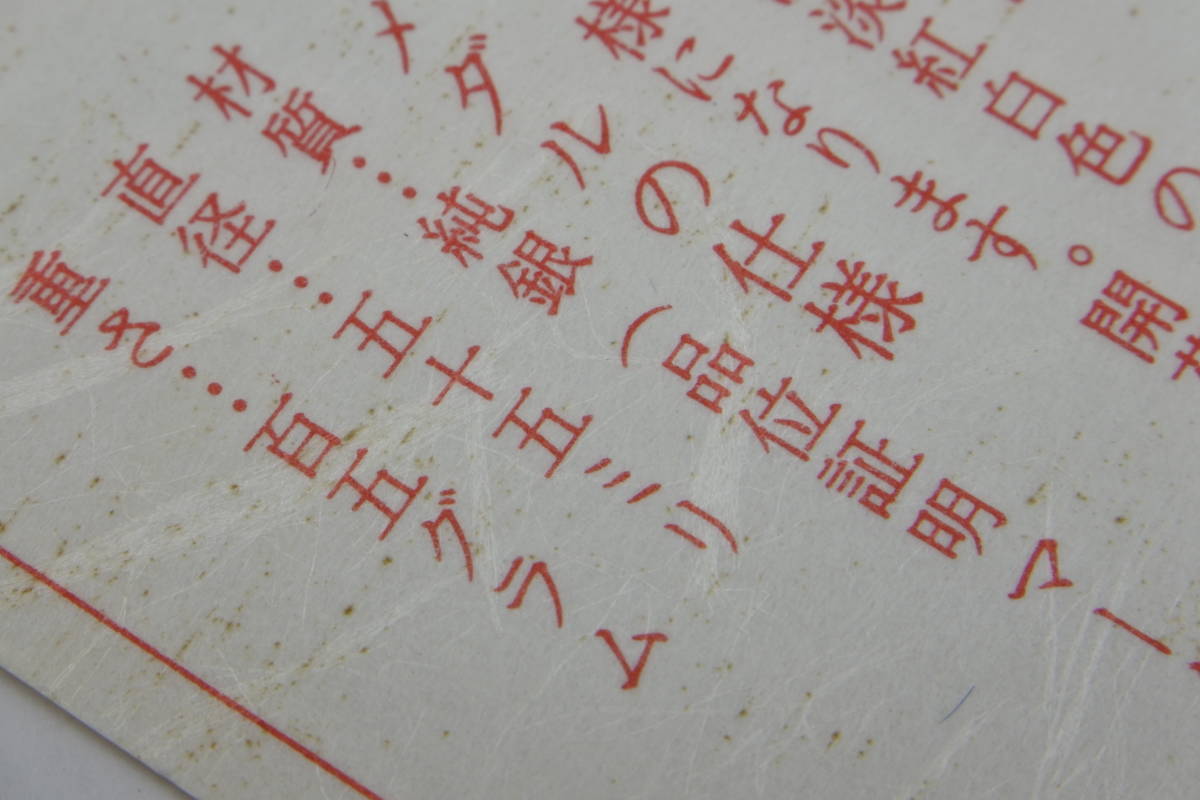 淡紅白色の
様になります。開
メダルの仕様
材質…純銀（品位証明マー
直径…五十五ミリ
重さ…百五グラム